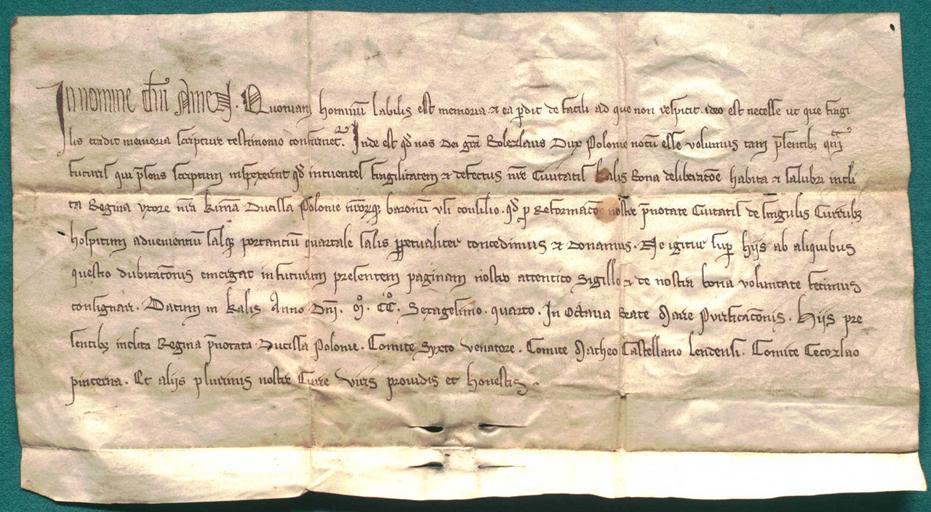 In nomine dñi Amen. Quoniam hominū labilis est memoria et ea p̱dit de facili ad que non respicit ideo est necesse ut que fragi
lis tradit memoria scripture testimonio confirmet᷑. Inde est qđ nos dei grã Bolezlaus Dux Polonie notū esse volumus tam p̃sentibꝫ quã
futuris qui p̃sens scriptum inspexerint qđ intuentes fragilitatem et defectus nr̃e Civitatis Kalis bona deliberatõe habita et salubri incli
ta Regina uxore nr̃a Kinna Ducissa Polonie nr̃orꝫ baronum usi consilio. qđ p̱ Reformatõe nostre p̃notate Civitatis de singulis Curribꝫ
hospitum advenientiū salꝫ portancium quartale salis p̱petualiter concedimus et donamus. Ne igitur sup̱ hijs ab aliquibus
questio dubitatõnis emergat in futurum presentem paginam nostro attentico sigillo et de nostra bona voluntate fecimus
consignari. Datum in Kalis Anno Dñi. Mᵒ. CCᵒ. Sexagesimo. quarto. In Octava beate Marie Purificatõnis. Hijs pre
sentibꝫ inclita Regina p̃notata Ducissa Polonie. Comite Syxto venatore. Comite Matheo Castellano Lendensi. Comite Cecozlao
pincerna. Et alijs plurimis nostre Curie viris providis et honestis.